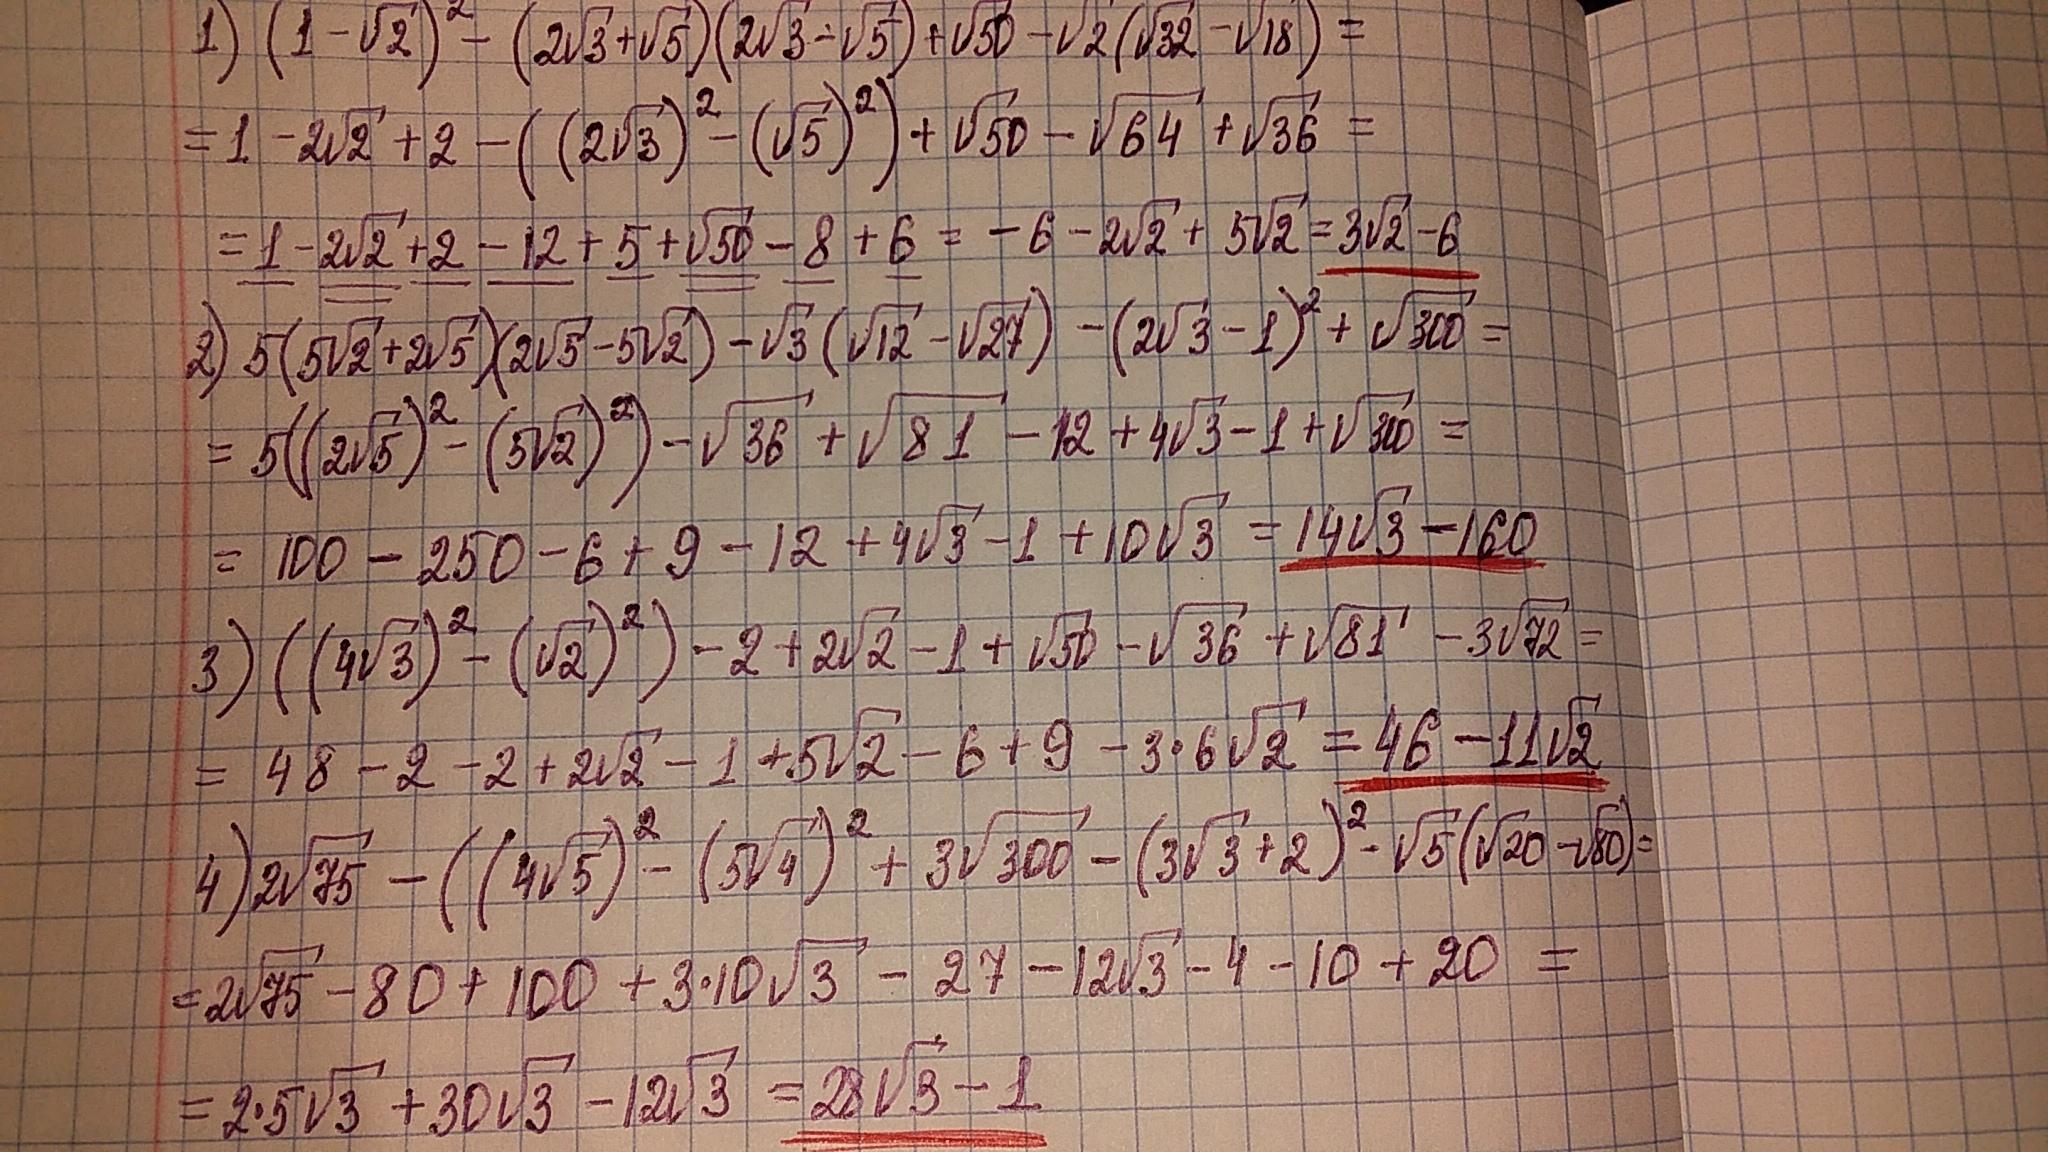 1) (1-√2)² - (2√3+√5)(2√3-√5)+√50-√2(√32-√18) =
= 1 -2√2+2 -((2√3)²-(√5)²)+√50-√64+√36 =
= 1 -2√2+2 -12+5+√50-8+6 = -6-2√2+5√2=3√2-6
2) 5(5√2+2√5)(2√5-5√2)-√3(√12-√27) -(2√3-1)²+√300=
= 5((2√5)²-(5√2)²)-√36+√81 -12+4√3-1+√300 =
= 100-250-6+9-12+4√3-1+10√3 =14√3-160
3) ((4√3)²-(√2)²)-2+2√2-1+√50-√36+√81 -3√72=
= 48-2-2+2√2-1+5√2-6+9-3·6√2=46-11√2
4) 2√75-((4√5)²-(5√4)²+3√300-(3√3+2)²-√5(√20-√80)=
=2√75-80+100+3·10√3-27-12√3-4-10+20 =
=2·5√3+30√3-12√3 =28√3-1